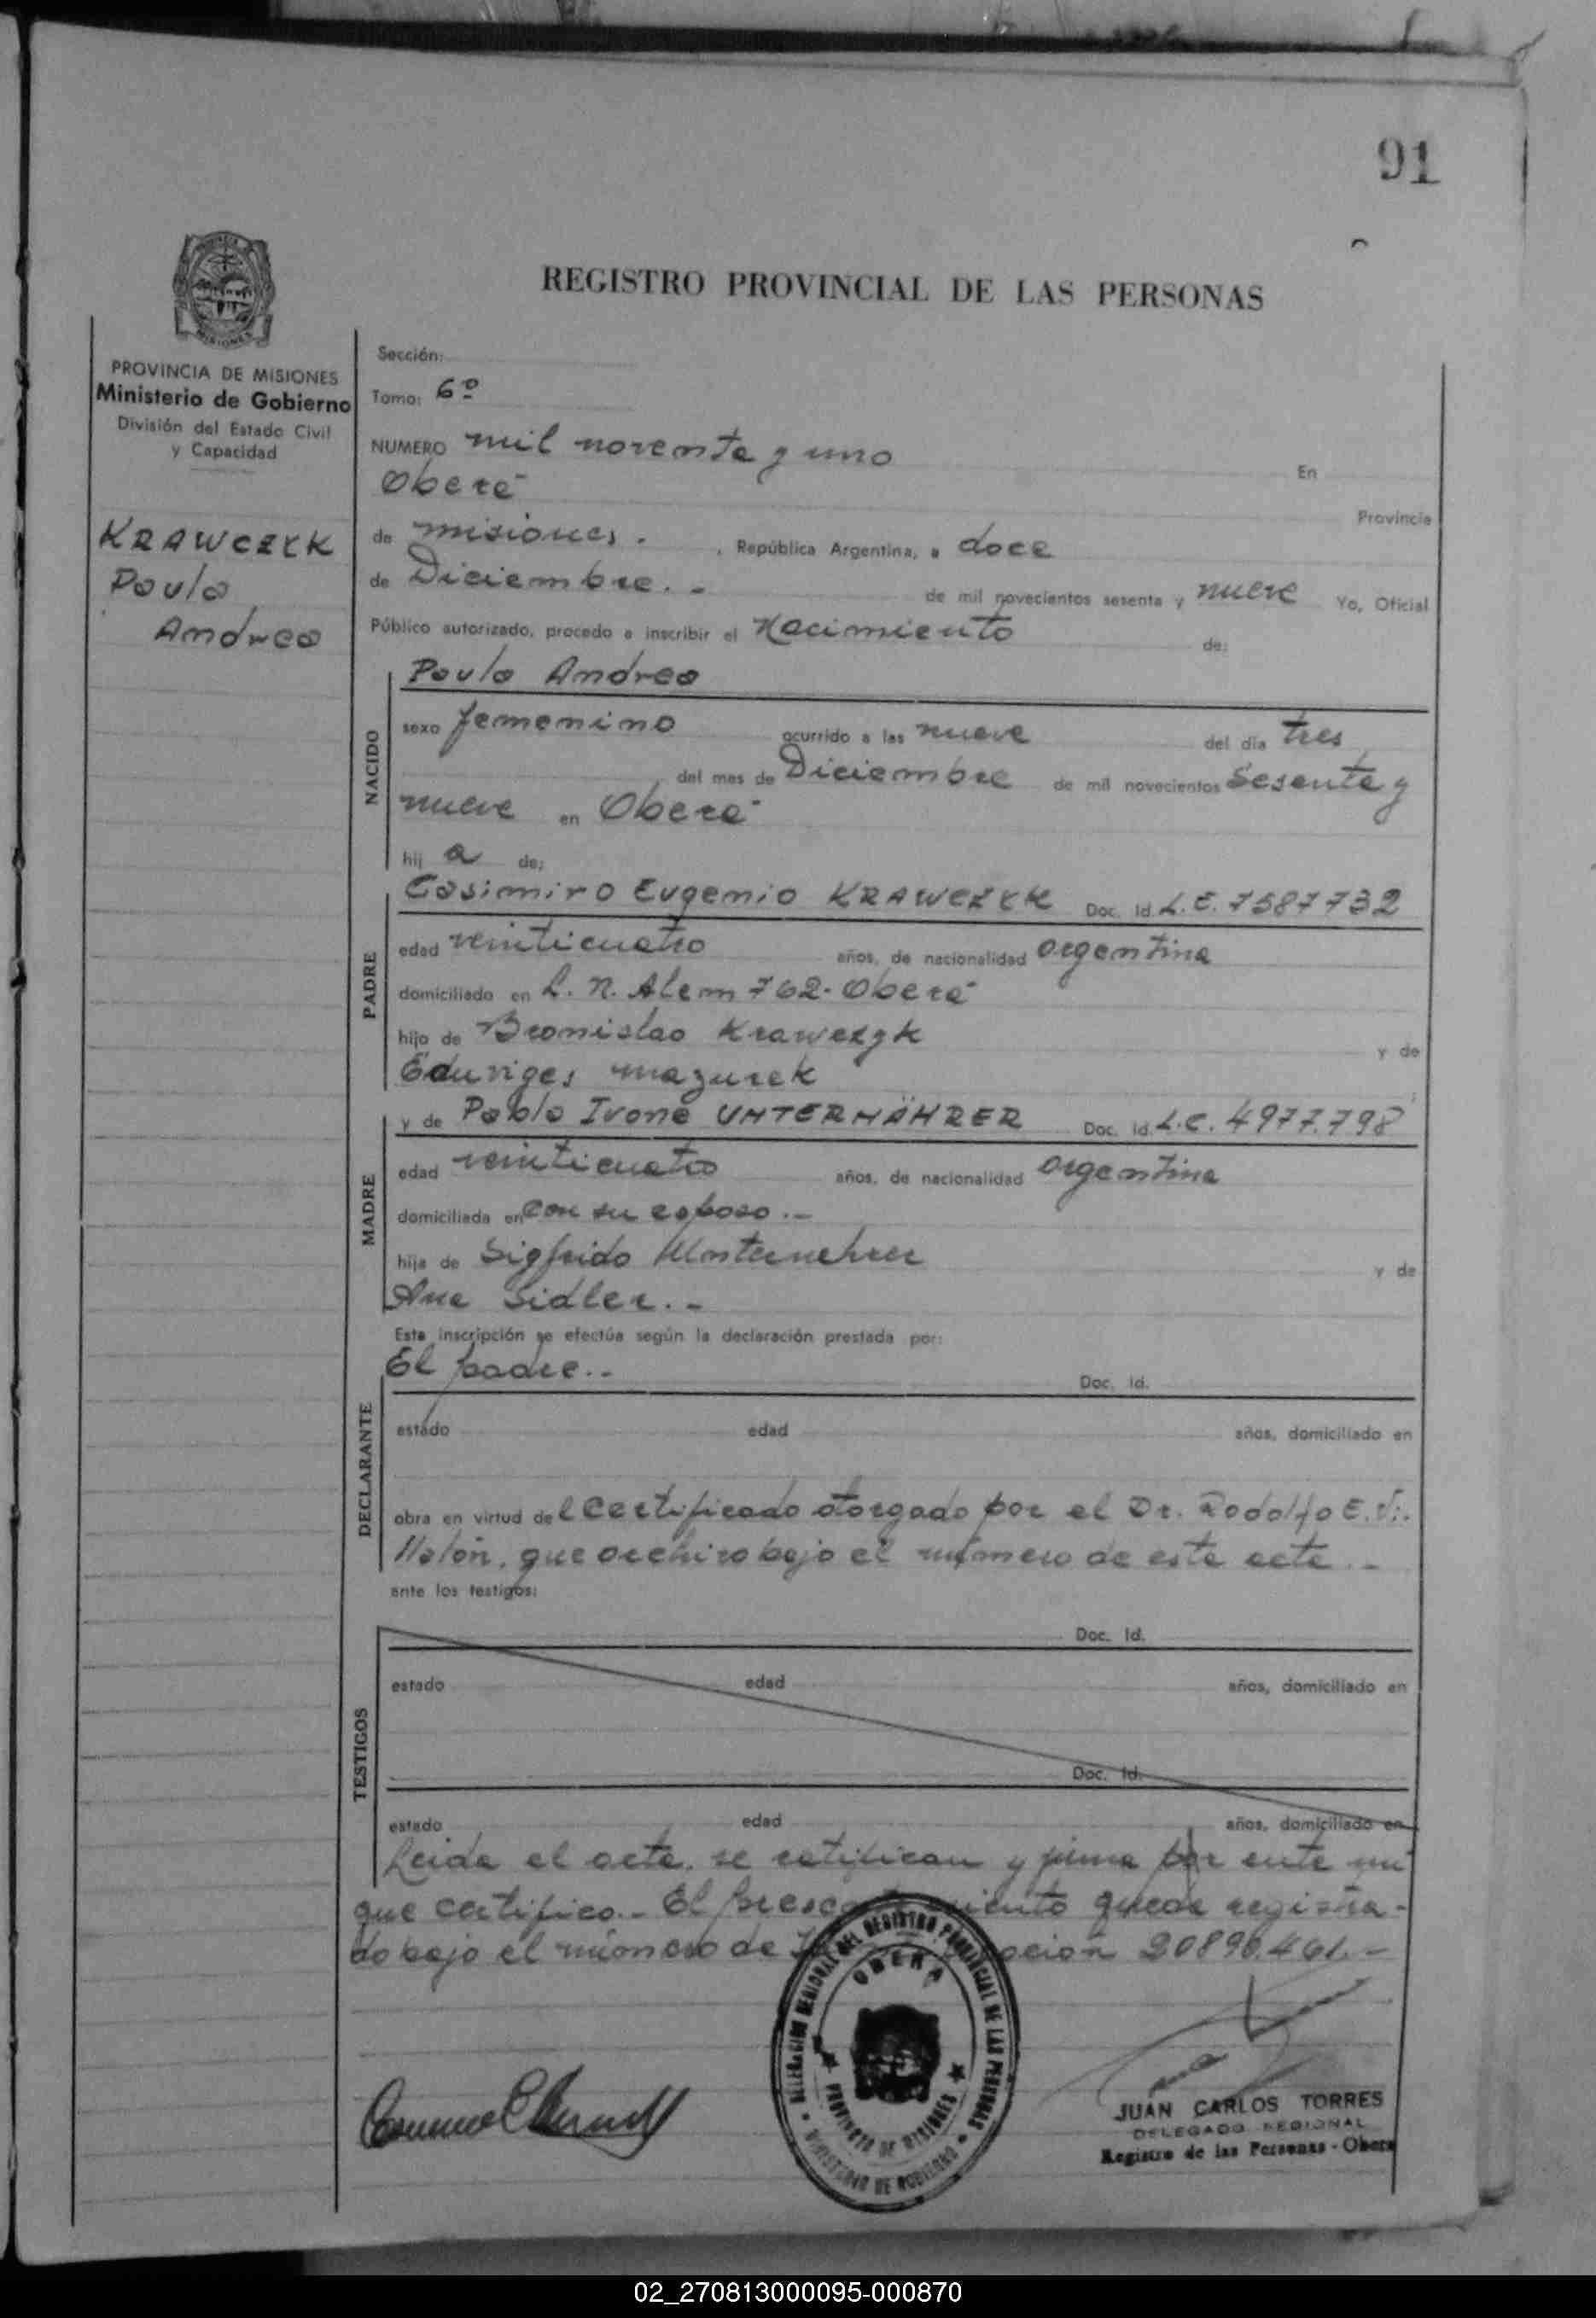 91
REGISTRO PROVINCIAL DE LAS PERSONAS
MISIONES
PROVINCIA DE MISIONES
Ministerio de Gobierno
División del Estado Civil
y Capacidad
KRAWCZYK
Paula
Andrea
Sección:
Tomo: 6º
NUMERO mil noventa y uno En
Oberá Provincia
de misiones. , República Argentina, a doce
de Diciembre. - de mil novecientos sesenta y nueve Yo, Oficial
Público autorizado, procedo a inscribir el Nacimiento de:
Paula Andrea
NACIDO
sexo femenino ocurrido a las nueve del día tres
del mes de Diciembre de mil novecientos sesenta y
nueve en Oberá
hij a de:
PADRE
Casimiro Eugenio KRAWCZYK Doc. Id. L.E. 7587732
edad veinticuatro años, de nacionalidad argentina
domiciliado en L. N. Alem 762 - Oberá
hijo de Bronislao Krawczyk y de
Eduviges mazurek
MADRE
y de Pabla Ivone UNTERNÄHRER Doc. Id. L.C. 4977.798
edad veinticuatro años, de nacionalidad argentina
domiciliada en con su esposo.-
hija de Sigfrido Unternehrer y de
Ana Sidler. -
Esta inscripción se efectúa según la declaración prestada por:
El padre.. Doc. Id.
DECLARANTE
estado edad años, domiciliado en
obra en virtud del certificado otorgado por el Dr. Rodolfo E. Vi-
llalón, que archivo bajo el número de este acta.-
ante los testigos:
TESTIGOS
Doc. Id.
estado edad años, domiciliado en
Doc. Id.
estado edad años, domiciliado en
Leida el acta, se ratifican y firma por ante mi
que certifico.- El presente queda registra-
do bajo el número de 20890.461.-
DELEGACION REGIONAL DEL REGISTRO PROVINCIAL DE LAS PERSONAS
OBERA
PROVINCIA DE MISIONES
MINISTERIO DE GOBIERNO
JUAN CARLOS TORRES
DELEGADO REGIONAL
Registro de las Personas - Obera
02_270813000095-000870